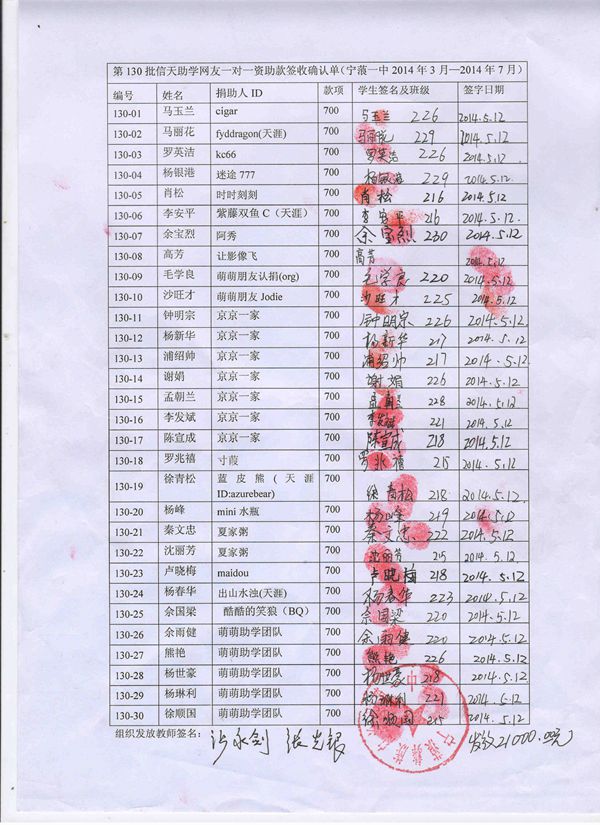 第 130 批信天助学网友一对一资助款签收确认单（宁蒗一中 2014 年 3 月—2014 年 7 月）
编号 姓名 捐助人 ID 款项 学生签名及班级 签字日期
130-01 马玉兰 cigar 700 马玉兰 226 2014.5.12
130-02 马丽花 fyddragon(天涯) 700 229 2014.5.12
130-03 罗英洁 kc66 700 罗英洁 226 2014.5.12
130-04 杨银港 迷途 777 700 杨银港 229 2014.5.12
130-05 肖松 时时刻刻 700 肖松 216 2014.5.12
130-06 李安平 紫藤双鱼 C（天涯） 700 李安平 216 2014.5.12
130-07 余宝烈 阿秀 700 余宝烈 230 2014.5.12
130-08 高芳 让影像飞 700 高芳 2014.5.12
130-09 毛学良 萌萌朋友认捐(org) 700 毛学良 220 2014.5.12
130-10 沙旺才 萌萌朋友 Jodie 700 沙旺才 225 2014.5.12
130-11 钟明宗 京京一家 700 钟明宗 226 2014.5.12
130-12 杨新华 京京一家 700 杨新华 217 2014.5.12
130-13 浦绍帅 京京一家 700 浦绍帅 217 2014.5.12
130-14 谢娟 京京一家 700 谢娟 226 2014.5.12
130-15 孟朝兰 京京一家 700 228 2014.5.12
130-16 李发斌 京京一家 700 李发斌 221 2014.5.12
130-17 陈宣成 京京一家 700 陈宣成 218 2014.5.12
130-18 罗兆禧 寸葭 700 罗兆禧 215 2014.5.12
130-19 徐青松 蓝皮熊（天涯 700 徐青松 218 2014.5.12
ID:azurebear)
130-20 杨峰 mini 水瓶 700 杨峰 219 2014.5.12
130-21 秦文忠 夏家粥 700 秦文忠 222 2014.5.12
130-22 沈丽芳 夏家粥 700 沈丽芳 215 2014.5.12
130-23 卢晓梅 maidou 700 卢晓梅 218 2014.5.12
130-24 杨春华 出山水浊(天涯) 700 杨春华 223 2014.5.12
130-25 余国梁 酷酷的笑狼（BQ） 700 余国梁 220 2014.5.12
130-26 余雨健 萌萌助学团队 700 余雨健 220 2014.5.12
130-27 熊艳 萌萌助学团队 700 熊艳 226 2014.5.12
130-28 杨世豪 萌萌助学团队 700 杨世豪 218 2014.5.12
130-29 杨琳利 萌萌助学团队 700 杨琳利 221 2014.5.12
130-30 徐顺国 萌萌助学团队 700 徐顺国 2014.5.12
组织发放教师签名： 沙永剑 张光银 发放21000.00元